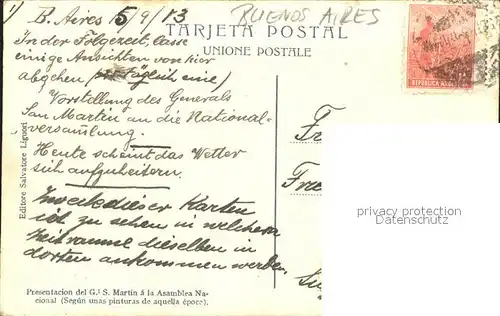 1) B. Aires 5/9/13
BUENOS AIRES
TARJETA POSTAL
UNIONE POSTALE
In der Folgezeit, lasse
einige Ansichten von hier
abgehen (täglich eine)
Vorstellung des Generals
San Martin an die National-
versammlung.
Heute scheint das Wetter
sich aufzuheitern.
Zweck dieser Karten
ist zu sehen in welchem
Zeitraume dieselben in
dorten ankommen werden.
Presentacion del G.ˡ S. Martin á la Asamblea Na-
cional (Según unas pinturas de aquella época).
Editore Salvatore Lignori
REPUBLICA
Fr
Fre
privacy protection
www.oldthing.de